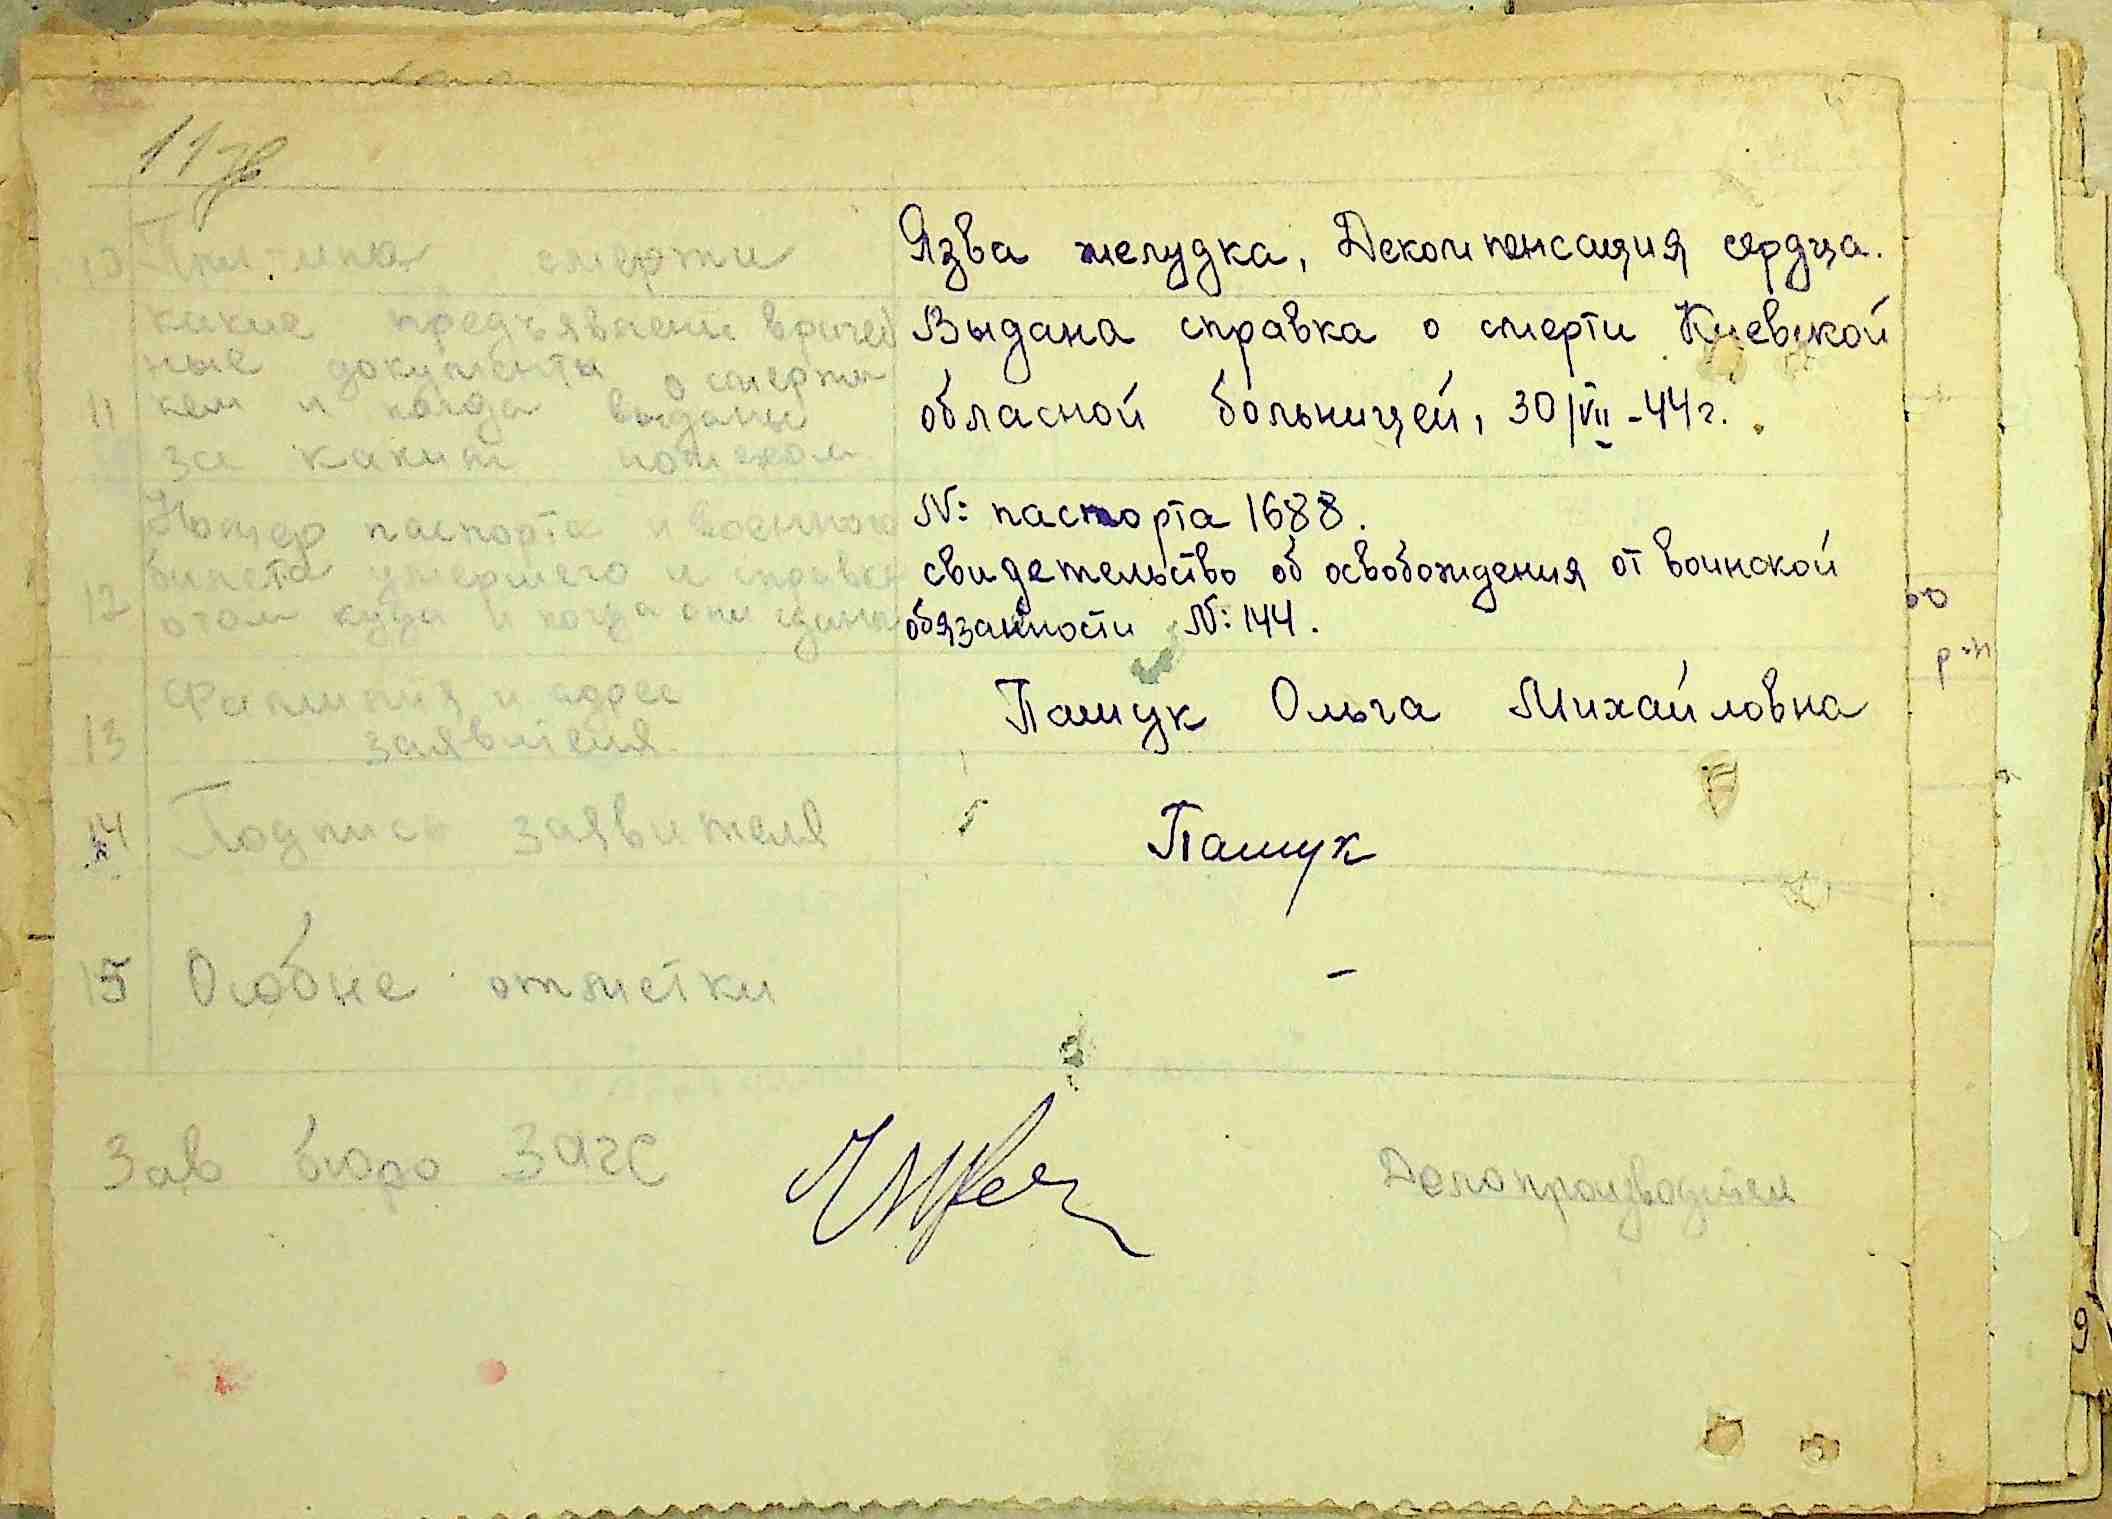 11 зв
10 Причина смерти
Язва желудка, Декомпенсация сердца.
11 какие предъявлены врачеб
ные документы о смерти
кем и когда выданы
за каким номером
Выдана справка о смерти Киевской
обласной больницей, 30/VII-44г.
12 Номер паспорта и военного
билета умершего и справка
о том куда и когда они сданы
№: паспорта 1688.
свидетельство об освобождения от воинской
обязанности №: 144.
13 Фамилия и адрес
заявителя
Пашук Ольга Михайловна
14 Подпись заявителя
Пашук
15 Особые отметки
-
Зав бюро ЗАГС
Делопроизводител